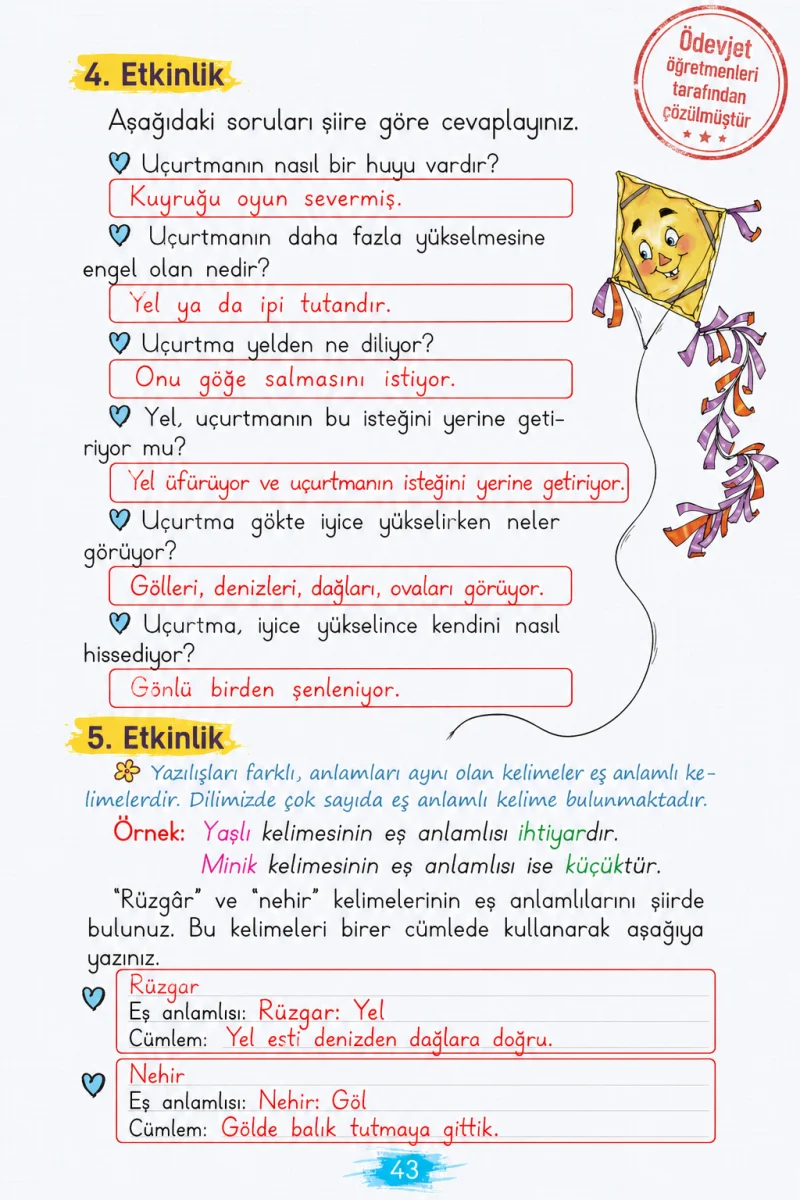 Ödevjet
öğretmenleri
tarafından
çözülmüştür
4. Etkinlik
Aşağıdaki soruları şiire göre cevaplayınız.
Uçurtmanın nasıl bir huyu vardır?
Kuyruğu oyun severmiş.
Uçurtmanın daha fazla yükselmesine
engel olan nedir?
Yel ya da ipi tutandır.
Uçurtma yelden ne diliyor?
Onu göğe salmasını istiyor.
Yel, uçurtmanın bu isteğini yerine geti-
riyor mu?
Yel üfürüyor ve uçurtmanın isteğini yerine getiriyor.
Uçurtma gökte iyice yükselirken neler
görüyor?
Gölleri, denizleri, dağları, ovaları görüyor.
Uçurtma, iyice yükselince kendini nasıl
hissediyor?
Gönlü birden şenleniyor.
5. Etkinlik
Yazılışları farklı, anlamları aynı olan kelimeler eş anlamlı ke-
limelerdir. Dilimizde çok sayıda eş anlamlı kelime bulunmaktadır.
Örnek: Yaşlı kelimesinin eş anlamlısı ihtiyardır.
Minik kelimesinin eş anlamlısı ise küçüktür.
"Rüzgâr" ve "nehir" kelimelerinin eş anlamlılarını şiirde
bulunuz. Bu kelimeleri birer cümlede kullanarak aşağıya
yazınız.
Rüzgar
Eş anlamlısı: Rüzgar: Yel
Cümlem: Yel esti denizden dağlara doğru.
Nehir
Eş anlamlısı: Nehir: Göl
Cümlem: Gölde balık tutmaya gittik.
43